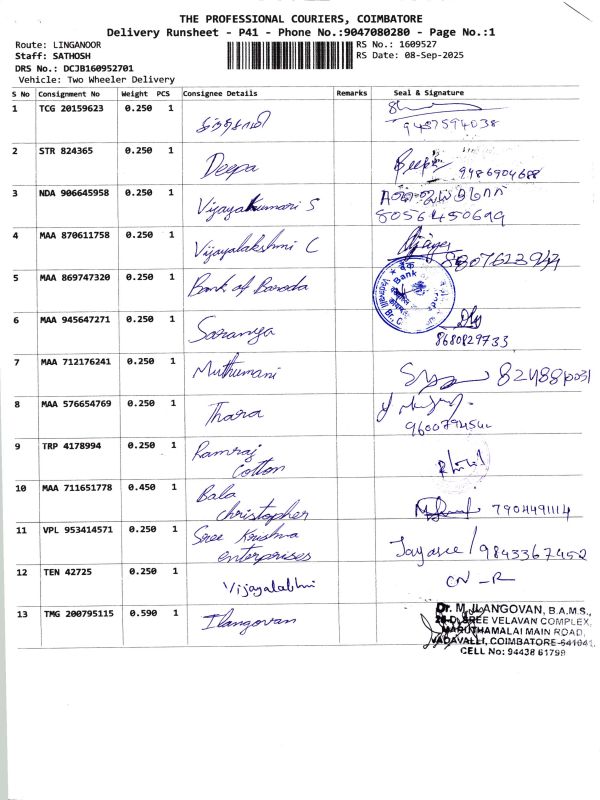 THE PROFESSIONAL COURIERS, COIMBATORE
Delivery Runsheet - P41 - Phone No.:9047080280 - Page No.:1
Route: LINGANOOR RS No.: 1609527
Staff: SATHOSH RS Date: 08-Sep-2025
DRS No.: DCJB160952701
Vehicle: Two Wheeler Delivery
S No Consignment No Weight PCS Consignee Details Remarks Seal & Signature
1 TCG 20159623 0.250 1
9487594038
2 STR 824365 0.250 1 Deepa Deepa 9486904688
3 NDA 906645958 0.250 1 Vijayakumari S
8056450699
4 MAA 870611758 0.250 1 Vijayalakshmi C
5 MAA 869747320 0.250 1 Bank of Baroda
Bank
6 MAA 945647271 0.250 1 Saranya
8680829733
7 MAA 712176241 0.250 1 Muthumani
8 MAA 576654769 0.250 1 Thara
9 TRP 4178994 0.250 1 Ramraj
Cotton
10 MAA 711651778 0.450 1 Bala
christopher 7904491114
11 VPL 953414571 0.250 1 Sree Krishna
enterprises Jayasree / 9843367452
12 TEN 42725 0.250 1 Vijayalabhni CN - R
13 TMG 200795115 0.590 1 Ilangovan
Dr. M. ILANGOVAN, B.A.M.S.,
SREE VELAVAN COMPLEX,
MARUTHAMALAI MAIN ROAD,
VADAVALLI, COIMBATORE-641041.
CELL No: 94438 61799